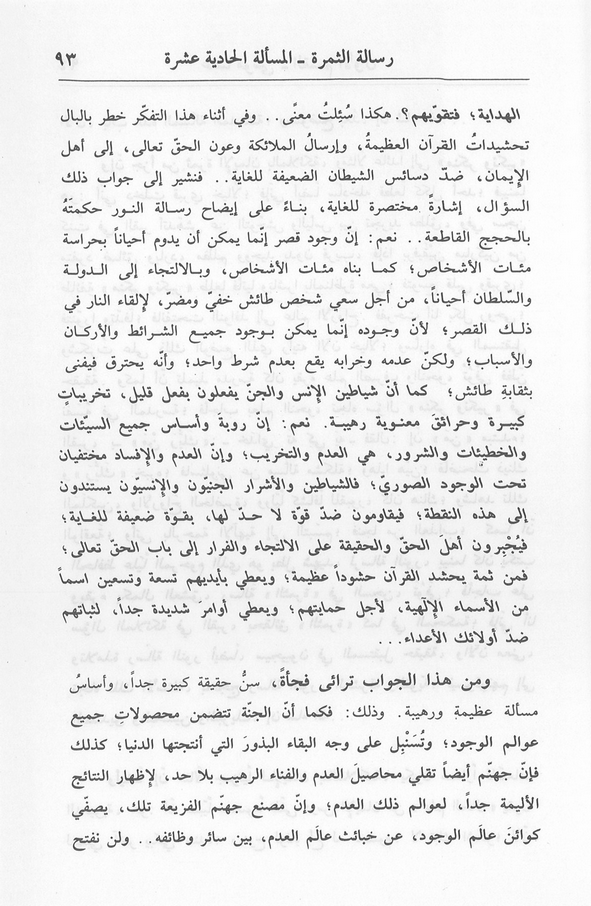 رسالة الثمرة - المسألة الحادية عشرة ٩٣
الهداية؛ فتقوّيهم؟. هكذا سُئِلتُ معنًى.. وفي أثناء هذا التفكّر خطر بالبال
تحشيداتُ القرآن العظيمةُ، وإرسالُ الملائكة وعون الحقّ تعالى، إلى أهل
الإيمان، ضدّ دسائس الشيطان الضعيفة للغاية.. فنشير إلى جواب ذلك
السؤال، إشارة مختصرة للغاية، بناءً على إيضاح رسالة النور حكمتَهُ
بالحجج القاطعة.. نعم: إنّ وجود قصر إنّما يمكن أن يدوم أحياناً بحراسة
مئات الأشخاص؛ كما بناه مئات الأشخاص، وبالالتجاء إلى الدولة
والسّلطان أحياناً، من أجل سعي شخص طائش خفيّ ومضرّ، لإلقاء النار في
ذلك القصر؛ لأنّ وجوده إنّما يمكن بوجود جميع الشرائط والأركان
والأسباب؛ ولكنّ عدمه وخرابه يقع بعدم شرط واحد؛ وأنّه يحترق فيفنى
بثقابةِ طائش؛ كما أنّ شياطين الإنس والجنّ يفعلون بفعل قليل، تخريباتٍ
كبيرة وحرائقَ معنوية رهيبة. نعم: إنّ روبةَ وأساس جميع السيّئات
والخطيئات والشرور، هي العدم والتخريب؛ وإنّ العدم والإفساد مختفيان
تحت الوجود الصوريّ؛ فالشياطين والأشرار الجنيّون والإنسيّون يستندون
إلى هذه النقطة؛ فيقاومون ضدّ قوّة لا حدّ لها، بقوّة ضعيفة للغاية؛
فيُجْبِرون أهلَ الحقّ والحقيقة على الالتجاء والفرار إلى باب الحقّ تعالى؛
فمن ثمة يحشد القرآن حشوداً عظيمة؛ ويعطي بأيديهم تسعة وتسعين اسماً
من الأسماء الإلٰهية، لأجل حمايتهم؛ ويعطي أوامرَ شديدة جداً، لثباتهم
ضدّ أولائك الأعداء...
ومن هذا الجواب ترائى فجأةً، سنُّ حقيقة كبيرة جداً، وأساسُ
مسألة عظيمةٍ ورهيبة. وذلك: فكما أنّ الجنّة تتضمن محصولاتِ جميع
عوالم الوجود؛ وتُسَنْبِل على وجه البقاء البذورَ التي أنتجتها الدنيا؛ كذلك
فإنّ جهنّم أيضاً تقلي محاصيلَ العدم والفناء الرهيب بلا حد، لإظهار النتائج
الأليمة جداً، لعوالم ذلك العدم؛ وإنّ مصنع جهنّم الفزيعة تلك، يصفّي
كوائنَ عالَم الوجود، عن خبائث عالَم العدم، بين سائر وظائفه.. ولن نفتح